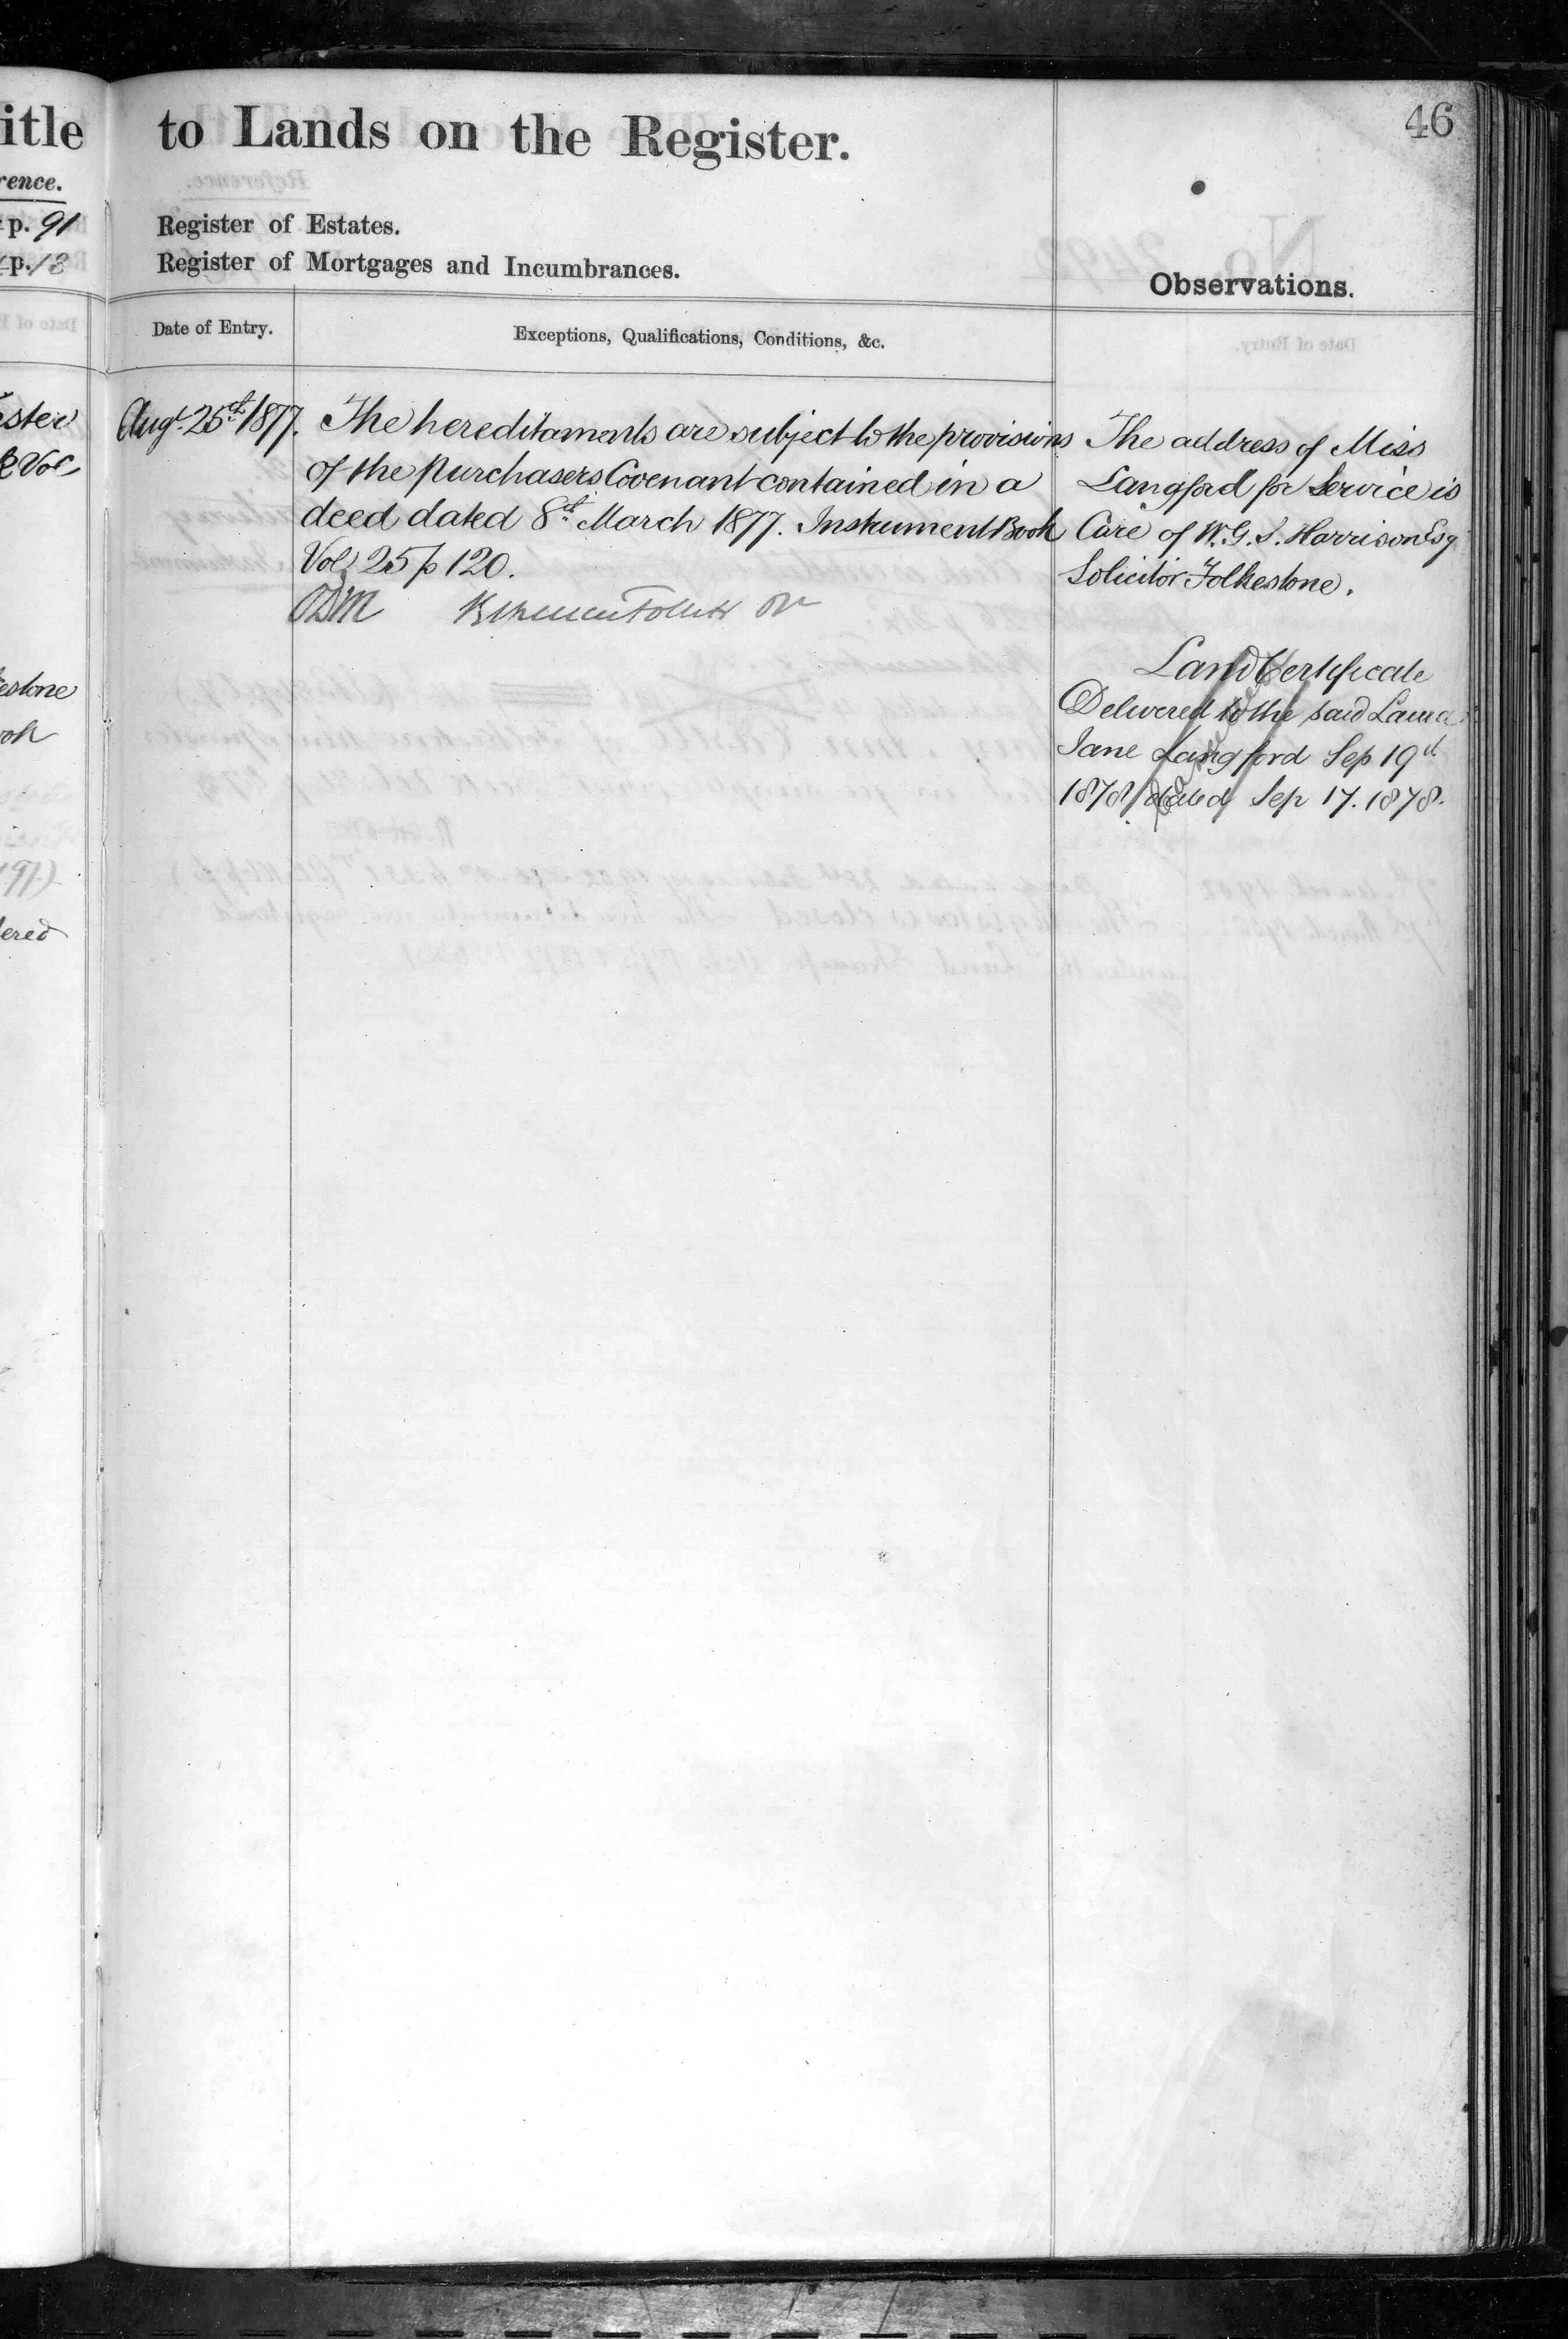 itle to Lands on the Register.
46
rence.
p. 91 Register of Estates.
p. 13 Register of Mortgages and Incumbrances.
Observations.
Date of Entry.
Exceptions, Qualifications, Conditions, &c.
Augt. 25th 1877. The hereditaments are subject to the provisions
of the Purchasers Covenant contained in a
deed dated 8th March 1877. Instrument Book
Vol 25 p 120.
The address of Miss
Langford for Service is
Care of W. G. S. Harrison Esq
Solicitor Folkestone.
Land Certificate
Delivered to the said Laura
Jane Langford Sep 19th
1878 dated Sep 17. 1878.
ster
& Vol
estone
ook
ered